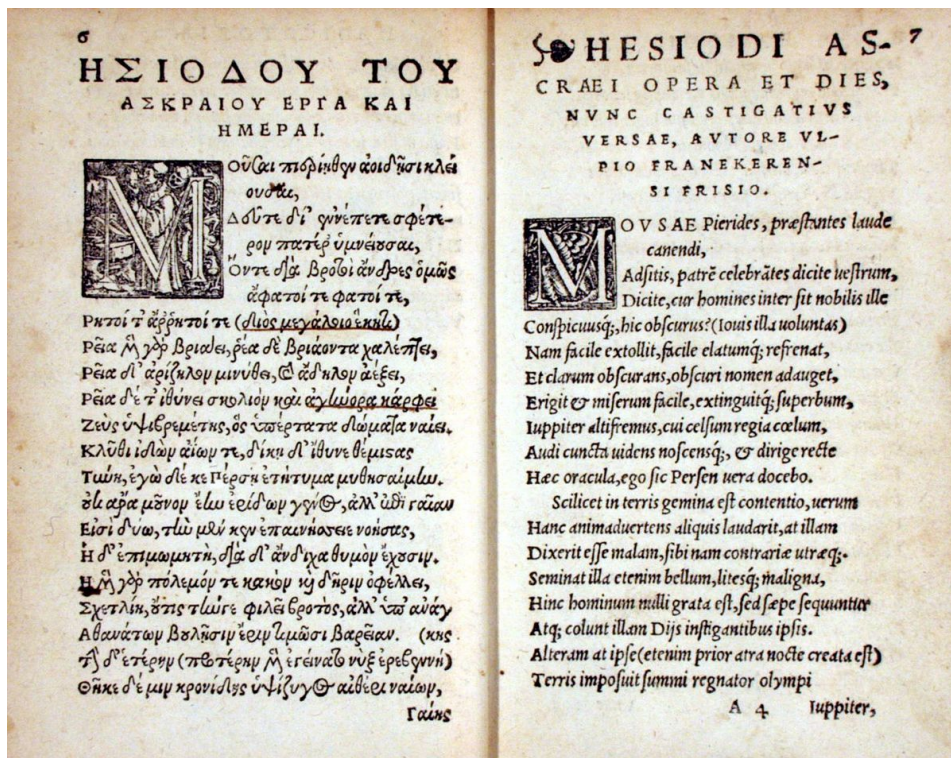 6
ΗΣΙΟΔΟΥ ΤΟΥ
ΑΣΚΡΑΙΟΥ ΕΡΓΑ ΚΑΙ
ΗΜΕΡΑΙ.
ΜΟῦσαι πιερίηθεν ἀοιδῆσι κλεί
ουσαι,
Δεῦτε δί᾽ ἐννέπετε σφέτε-
ρον πατέρ᾽ ὑμνείουσαι,
Ὅντε διὰ βροτοὶ ἄνδρες ὁμῶς
ἄφατοί τε φατοί τε,
Ρητοί τ᾽ ἄρρητοί τε (διὸς μεγάλοιο ἕκητι)
Ρεῖα μὲν γὰρ βριάει, ῥέα δὲ βριάοντα χαλέπτει,
Ρεῖα δ᾽ ἀρίζηλον μινύθει, καὶ ἄδηλον ἀέξει,
Ρεῖα δέ τ᾽ ἰθύνει σκολιὸν καὶ ἀγήνορα κάρφει
Ζεὺς ὑψιβρεμέτης, ὃς ὑπέρτατα δώματα ναίει.
Κλῦθι ἰδὼν ἀΐων τε, δίκῃ δ᾽ ἴθυνε θέμιστας
Τύνη, ἐγὼ δέ κε Πέρσῃ ἐτήτυμα μυθησαίμην.
οὐκ ἄρα μοῦνον ἔην ἐρίδων γένος, ἀλλ᾽ ἐπὶ γαῖαν
Εἰσὶ δύω, τὴν μέν κεν ἐπαινήσειε νοήσας,
Ἡ δ᾽ ἐπιμωμητή, διὰ δ᾽ ἄνδιχα θυμὸν ἔχουσιν.
Ἡ μὲν γὰρ πόλεμόν τε κακὸν καὶ δῆριν ὀφέλλει,
Σχετλίη, οὔτις τήνγε φιλεῖ βροτός, ἀλλ᾽ ὑπ᾽ ἀνάγ
Ἀθανάτων βουλῇσιν ἔριν τιμῶσι βαρεῖαν. (κης
τὴν δ᾽ ἑτέρην (προτέρην μὲν ἐγείνατο νὺξ ἐρεβεννή)
Θῆκε δέ μιν κρονίδης ὑψίζυγος αἰθέρι ναίων,
Γαίης
7
HESIODI AS-
CRAEI OPERA ET DIES,
NVNC CASTIGATIVS
VERSAE, AVTORE VL-
PIO FRANEKEREN-
SI FRISIO.
MOVSAE Pierides, præstantes laude
canendi,
Adsitis, patrē celebrātes dicite uestrum,
Dicite, cur homines inter sit nobilis ille
Conspicuusq;, hic obscurus? (Iouis illa uoluntas)
Nam facile extollit, facile elatumq; refrenat,
Et clarum obscurans, obscuri nomen adauget,
Erigit & miserum facile, extinguitq; superbum,
Iuppiter altifremus, cui celsum regia cœlum,
Audi cuncta uidens noscensq;, & dirige recte
Hæc oracula, ego sic Persen uera docebo.
Scilicet in terris gemina est contentio, uerum
Hanc animaduertens aliquis laudarit, at illam
Dixerit esse malam, sibi nam contrariæ utræq;.
Seminat illa etenim bellum, litesq; maligna,
Hinc hominum nulli grata est, sed sæpe sequuntur
Atq; colunt illam Dijs instigantibus ipsis.
Alteram at ipse (etenim prior atra nocte creata est)
Terris imposuit summi regnator olympi
A 4 Iuppiter,